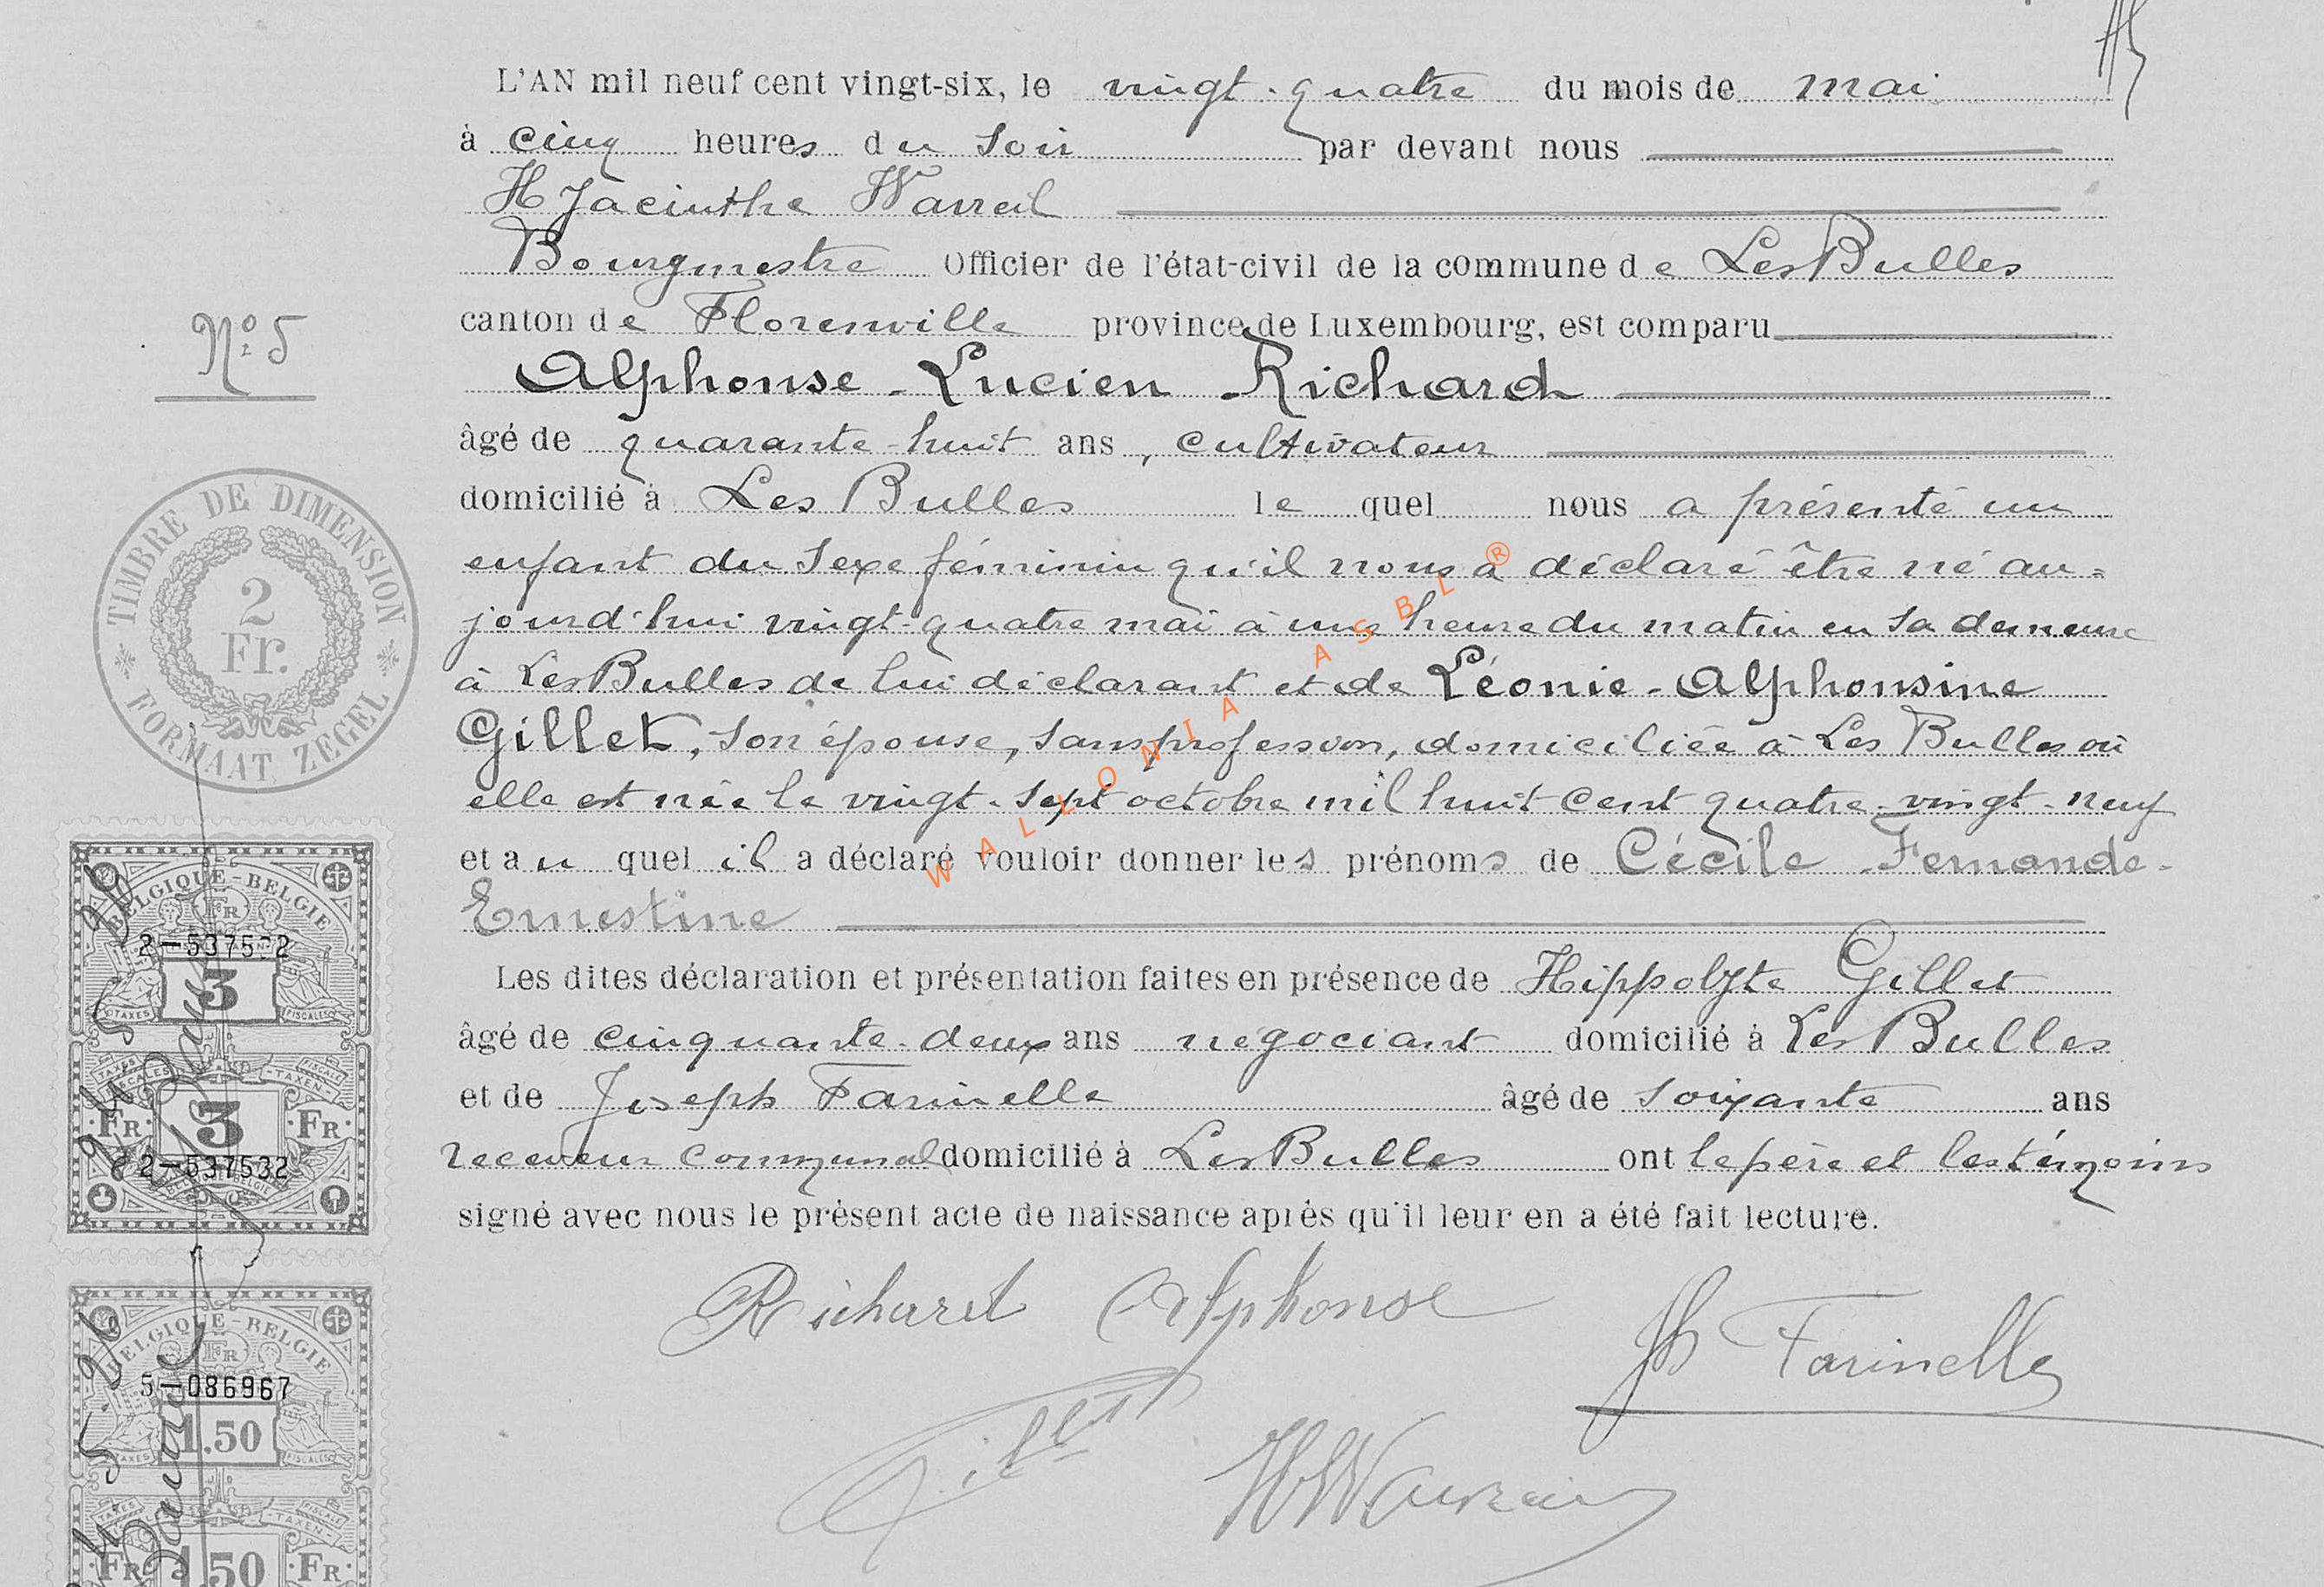 L'AN mil neuf cent vingt-six, le vingt-quatre du mois de mai
à cinq heures du soir par devant nous
Hyacinthe
Bourgmestre Officier de l'état-civil de la commune de Les Bulles
canton de Florenville province de Luxembourg, est comparu
Nº 5
Alphonse-Lucien-Richard
âgé de quarante-huit ans, cultivateur
domicilié à Les Bulles lequel nous a présenté un
enfant du sexe féminin qu'il nous a déclaré être né au=
jourd'hui vingt-quatre mai à une heure du matin en sa demeure
à Les Bulles de lui déclarant et de Léonie-Alphonsine
Gillet, son épouse, sans profession, domiciliée à Les Bulles où
elle est née le vingt-sept octobre mil huit cent quatre-vingt-neuf
et au quel il a déclaré vouloir donner les prénoms de Cécile-Fernande-
Ernestine
Les dites déclaration et présentation faites en présence de Hippolyte Gillet
âgé de cinquante-deux ans négociant domicilié à Les Bulles
et de Joseph Farinelle âgé de soixante ans
receveur communal domicilié à Les Bulles ont le père et les témoins
signé avec nous le présent acte de naissance après qu'il leur en a été fait lecture.
Richard Alphonse
Jh Farinelle
Gillet
TIMBRE DE DIMENSION
2
Fr.
FORMAAT ZEGEL
BELGIQUE-BELGIE
FR
2-537532
3
TAXES FISCALES
TAXES FISCALES TAXEN
FR 3 FR
2-537532
BELGIQUE-BELGIE
FR
5-086967
1.50
TAXES FISCALES
FR 1.50 FR
WALLONIA ASBL ®